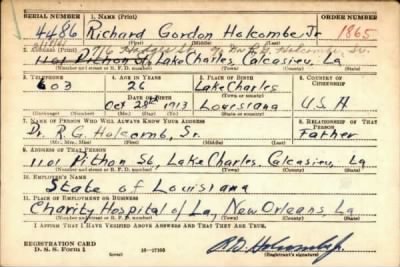 SERIAL NUMBER 1. NAME (Print) ORDER NUMBER
4486 Richard Gordon Holcombe Jr 1865
(First) (Middle) (Last)
716 Hodges St. % Dr. R.G. Holcombe, Sr.
2. ADDRESS (Print)
1101 Pithon St, Lake Charles, Calcasieu, La
(Number and street or R. F. D. number) (Town) (County) (State)
3. TELEPHONE 4. AGE IN YEARS 5. PLACE OF BIRTH 6. COUNTRY OF CITIZENSHIP
603 26 Lake Charles
DATE OF BIRTH (Town or county)
Oct 28th 1913 Louisiana U S A
(Mo.) (Day) (Yr.) (State or country)
7. NAME OF PERSON WHO WILL ALWAYS KNOW YOUR ADDRESS 8. RELATIONSHIP OF THAT PERSON
Dr. R.G. Holcomb, Sr. Father
(Mr., Mrs., Miss) (First) (Middle) (Last)
9. ADDRESS OF THAT PERSON
1101 Pithon St, Lake Charles, Calcasieu, La
(Number and street or R. F. D. number) (Town) (County) (State)
10. EMPLOYER'S NAME
State of Louisiana
11. PLACE OF EMPLOYMENT OR BUSINESS
Charity Hospital of La, New Orleans, La
(Number and street or R. F. D. number) (Town) (County) (State)
I AFFIRM THAT I HAVE VERIFIED ABOVE ANSWERS AND THAT THEY ARE TRUE.
REGISTRATION CARD
D. S. S. Form 1 (over) 16-17105
(Registrant's signature)